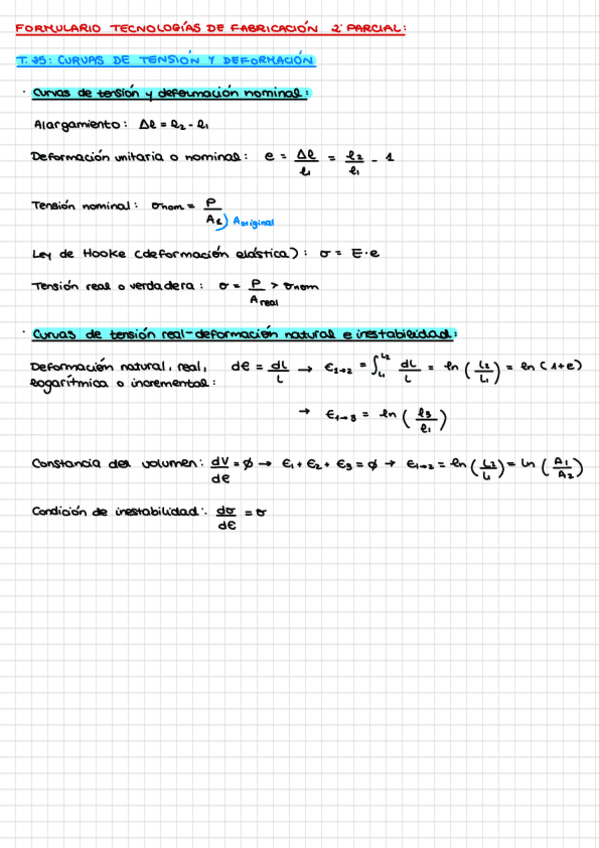 FORMULARIO TECNOLOGÍAS DE FABRICACIÓN 2º PARCIAL:
T.25: CURVAS DE TENSIÓN Y DEFORMACIÓN
· Curvas de tensión y deformación nominal:
Alargamiento: Δl = l₂ - l₁
Deformación unitaria o nominal: e = Δl/l₁ = l₂/l₁ - 1
Tensión nominal: σnom = P/A₁) Aoriginal
Ley de Hooke (deformación elástica): σ = E·e
Tensión real o verdadera: σ = P/Areal > σnom
· Curvas de tensión real-deformación natural e inestabilidad:
Deformación natural, real, dϵ = dL/L → ϵ₁→₂ = ∫_L₁^L₂ dL/L = ln (L₂/L₁) = ln (1+e)
logarítmica o incremental:
→ ϵ₁→₃ = ln (l₃/l₁)
Constancia del volumen: dV/dϵ = ϕ → ϵ₁ + ϵ₂ + ϵ₃ = ϕ → ϵ₁→₂ = ln (L₂/L₁) = ln (A₁/A₂)
Condición de inestabilidad: dσ/dϵ = σ